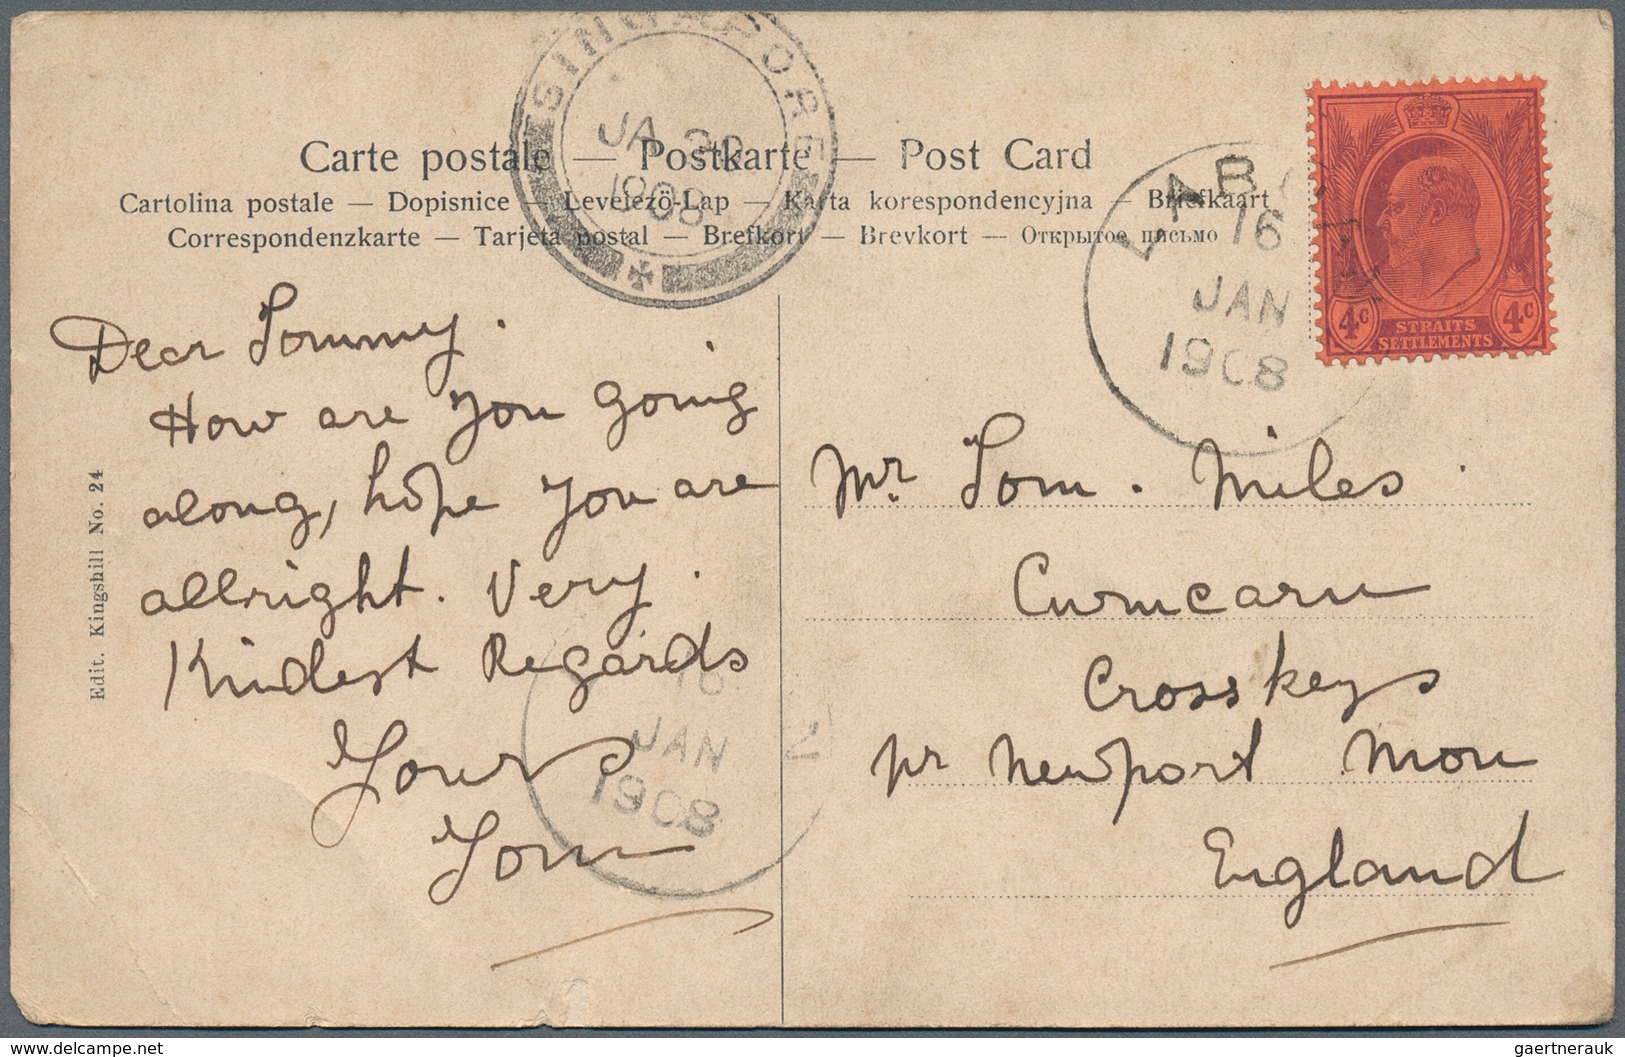 SINGAPORE
JA
1908
Carte postale — Postkarte — Post Card
Cartolina postale — Dopisnice — Levelező-Lap — Karta korespondencyjna — Briefkaart
Correspondenzkarte — Tarjeta postal — Brefkort — Brevkort — Открытое письмо
LAB
16
JAN
1908
4c
STRAITS
SETTLEMENTS
4c
Edit. Kingshill No. 24
Dear Tommy.
How are you going
along, hope you are
allright. Very
Kindest Regards
Yours
Tom
16
JAN
1908
Mr Tom. Miles
Cwmcarn
Crosskeys
pr Newport Mon
England
gaertnerauk